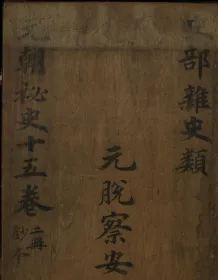 史部雜史類
元脫察安
元朝秘史十五卷
二冊